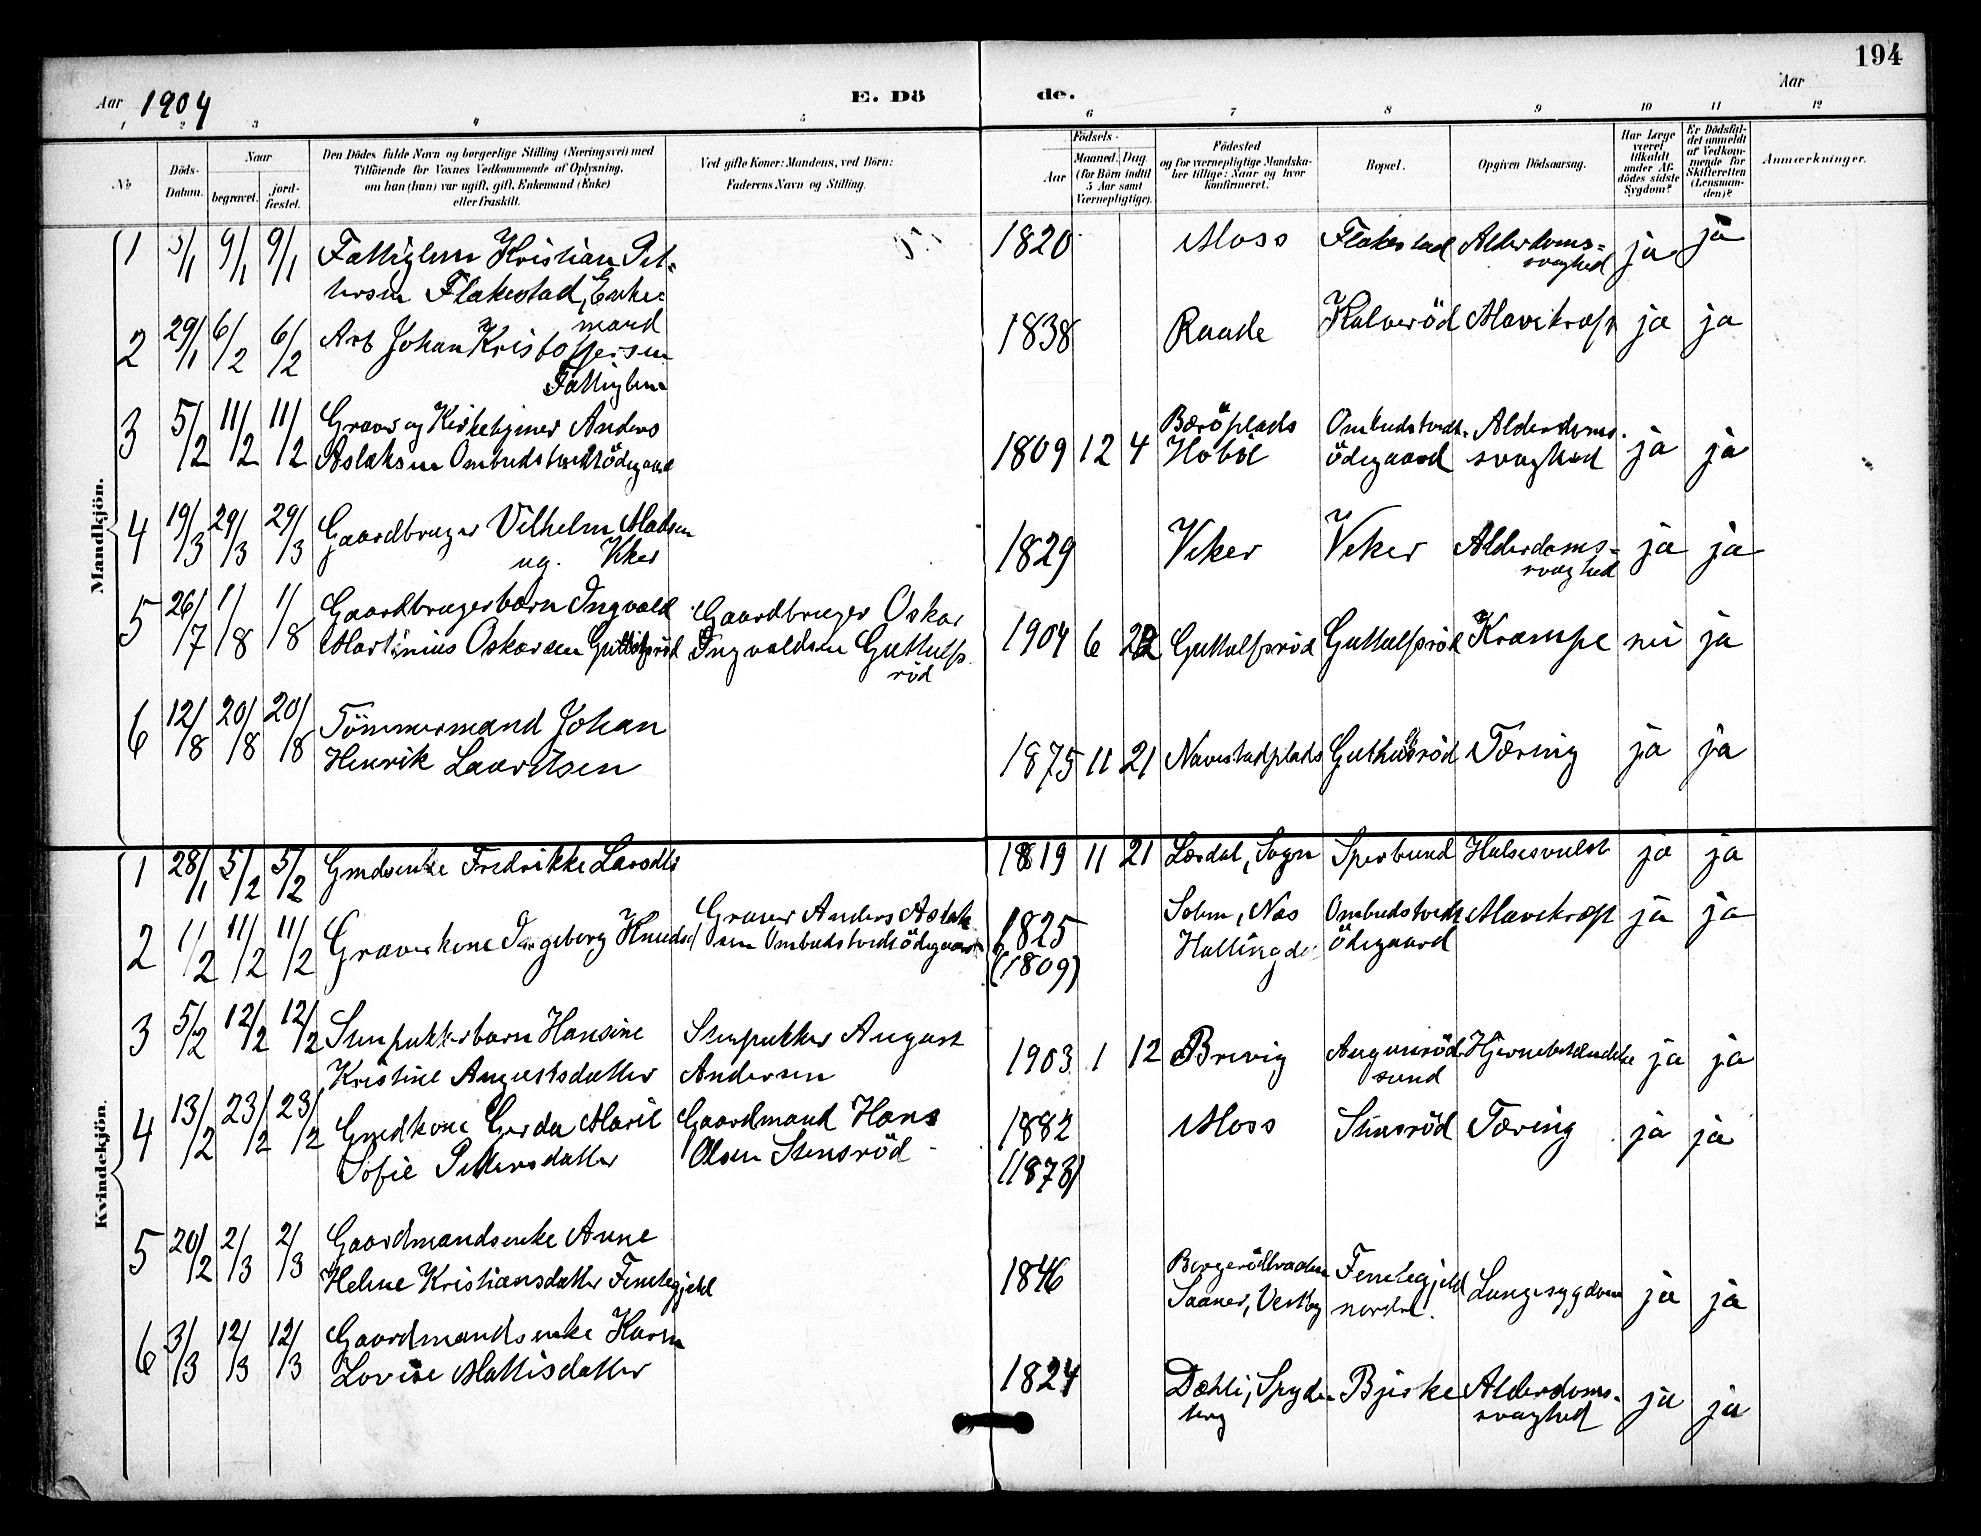 194
Aar 1904
E. Döde.
Aar
1 2 3 4 5 6 7 8 9 10 11 12
No
Döds-Datum.
Naar
begravet.
jord-fæstet.
Den Dödes fulde Navn og borgerlige Stilling (Næringsvei) med
Tilföiende for Voxnes Vedkommende af Oplysning,
om han (hun) var ugift, gift, Enkemand (Enke)
eller fraskilt.
Ved gifte Koner: Mandens, ved Börn:
Faderens Navn og Stilling.
Födsels-
Aar
Maaned. Dag
(for Börn indtil
5 Aar samt
Værnepligtige).
Födested
og for værnepligtige Mandska-
ber tillige: Naar og hvor
konfirmeret.
Bopæl.
Opgiven Dödsaarsag.
Har Læge
været
tilkaldt
under Af-
dödes sidste
Sygdom?
Er Dödsfal-
det anmeldt
af Vedkom-
mende for
Skifteretten
(Lensman-
den)?
Anmærkninger.
Mandkjön.
1 5/1 9/1 9/1 Fattiglem Kristian Pet- 1820 Moss Flakestad Alderdoms- ja ja
tersen Flakestad, Enke- svaghed
mand
2 29/1 6/2 6/2 Arb Johan Kristoffersen 1838 Raade Kalveröd Mavekræft ja ja
Fattiglem
3 5/2 11/2 11/2 Graver og Kirketjener Anders 1809 12 4 Beröplads Ombudstvedt- Alderdoms- ja ja
Aslaksen Ombudstvedtödegaard Höböl ödegaard svaghed
4 19/3 29/3 29/3 Gaardbruger Vilhelm Madsen 1829 Veker Veker Alderdoms- ja ja
ug. Veker svaghed
5 26/7 1/8 1/8 Gaardbrugerbarn Ingvald Gaardbruger Oskar
Martinius Oskarsen Guttulfsröd Ingvaldsen Guttulfs- 1904 6 22 Guttulfsröd Guttulfsröd Krampe nei ja
röd
6 12/8 20/8 20/8 Tömmermand Johan
Henrik Lauritsen 1875 11 21 Navestadplads Guthusröd Tæring ja ja
Kvindekjön.
1 28/1 5/2 5/2 Gmdsenke Fredrikke Larsdtr 1819 11 21 Lærdal, Sogn Sperbund Halssvulst ja ja
2 1/2 11/2 11/2 Graverkone Ingeborg Knudsd Graver Anders Aslak- 1825 Solem, Nes Ombudstvedt Mavekræft ja ja
sen Ombudstvedtödegaard (1809) Hallingdal ödegaard
3 5/2 12/2 12/2 Stenpukkerbarn Hansine Stenpukker August 1903 1 12 Brevig Augunsröd Hjernebetændelse ja ja
Kristine Augustsdatter Andersen sund
4 13/2 23/2 23/2 Gmdkone Gerda Marie Gaardmand Hans 1882 Moss Stensröd Tæring ja ja
Sofie Pettersdatter Olsen Stensröd (1873)
5 20/2 2/3 2/3 Gaardmandsenke Anne
Helene Kristiansdatter Femtegjeld 1846 Saaner, Vestby Femtegjeld nordre. Lungesygdom ja ja
6 3/3 12/3 12/3 Gaardmandsenke Karen
Lovise Mattisdatter 1824 Dæhli, Spyde- Bjerke Alderdoms- ja ja
berg svaghed